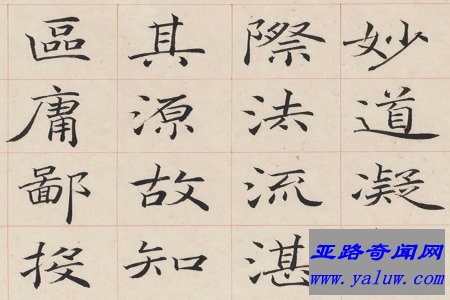 妙道凝
際法流湛
其源故知
區庸鄙投
亚路奇闻网
www.yaluw.com